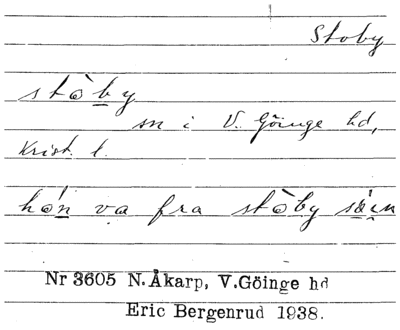 Stoby
stò̱by
sn i V. Göinge hd,
Krist. l.
hón va fra stòby
Nr 3605 N.Åkarp, V.Göinge hd
Eric Bergenrud 1938.